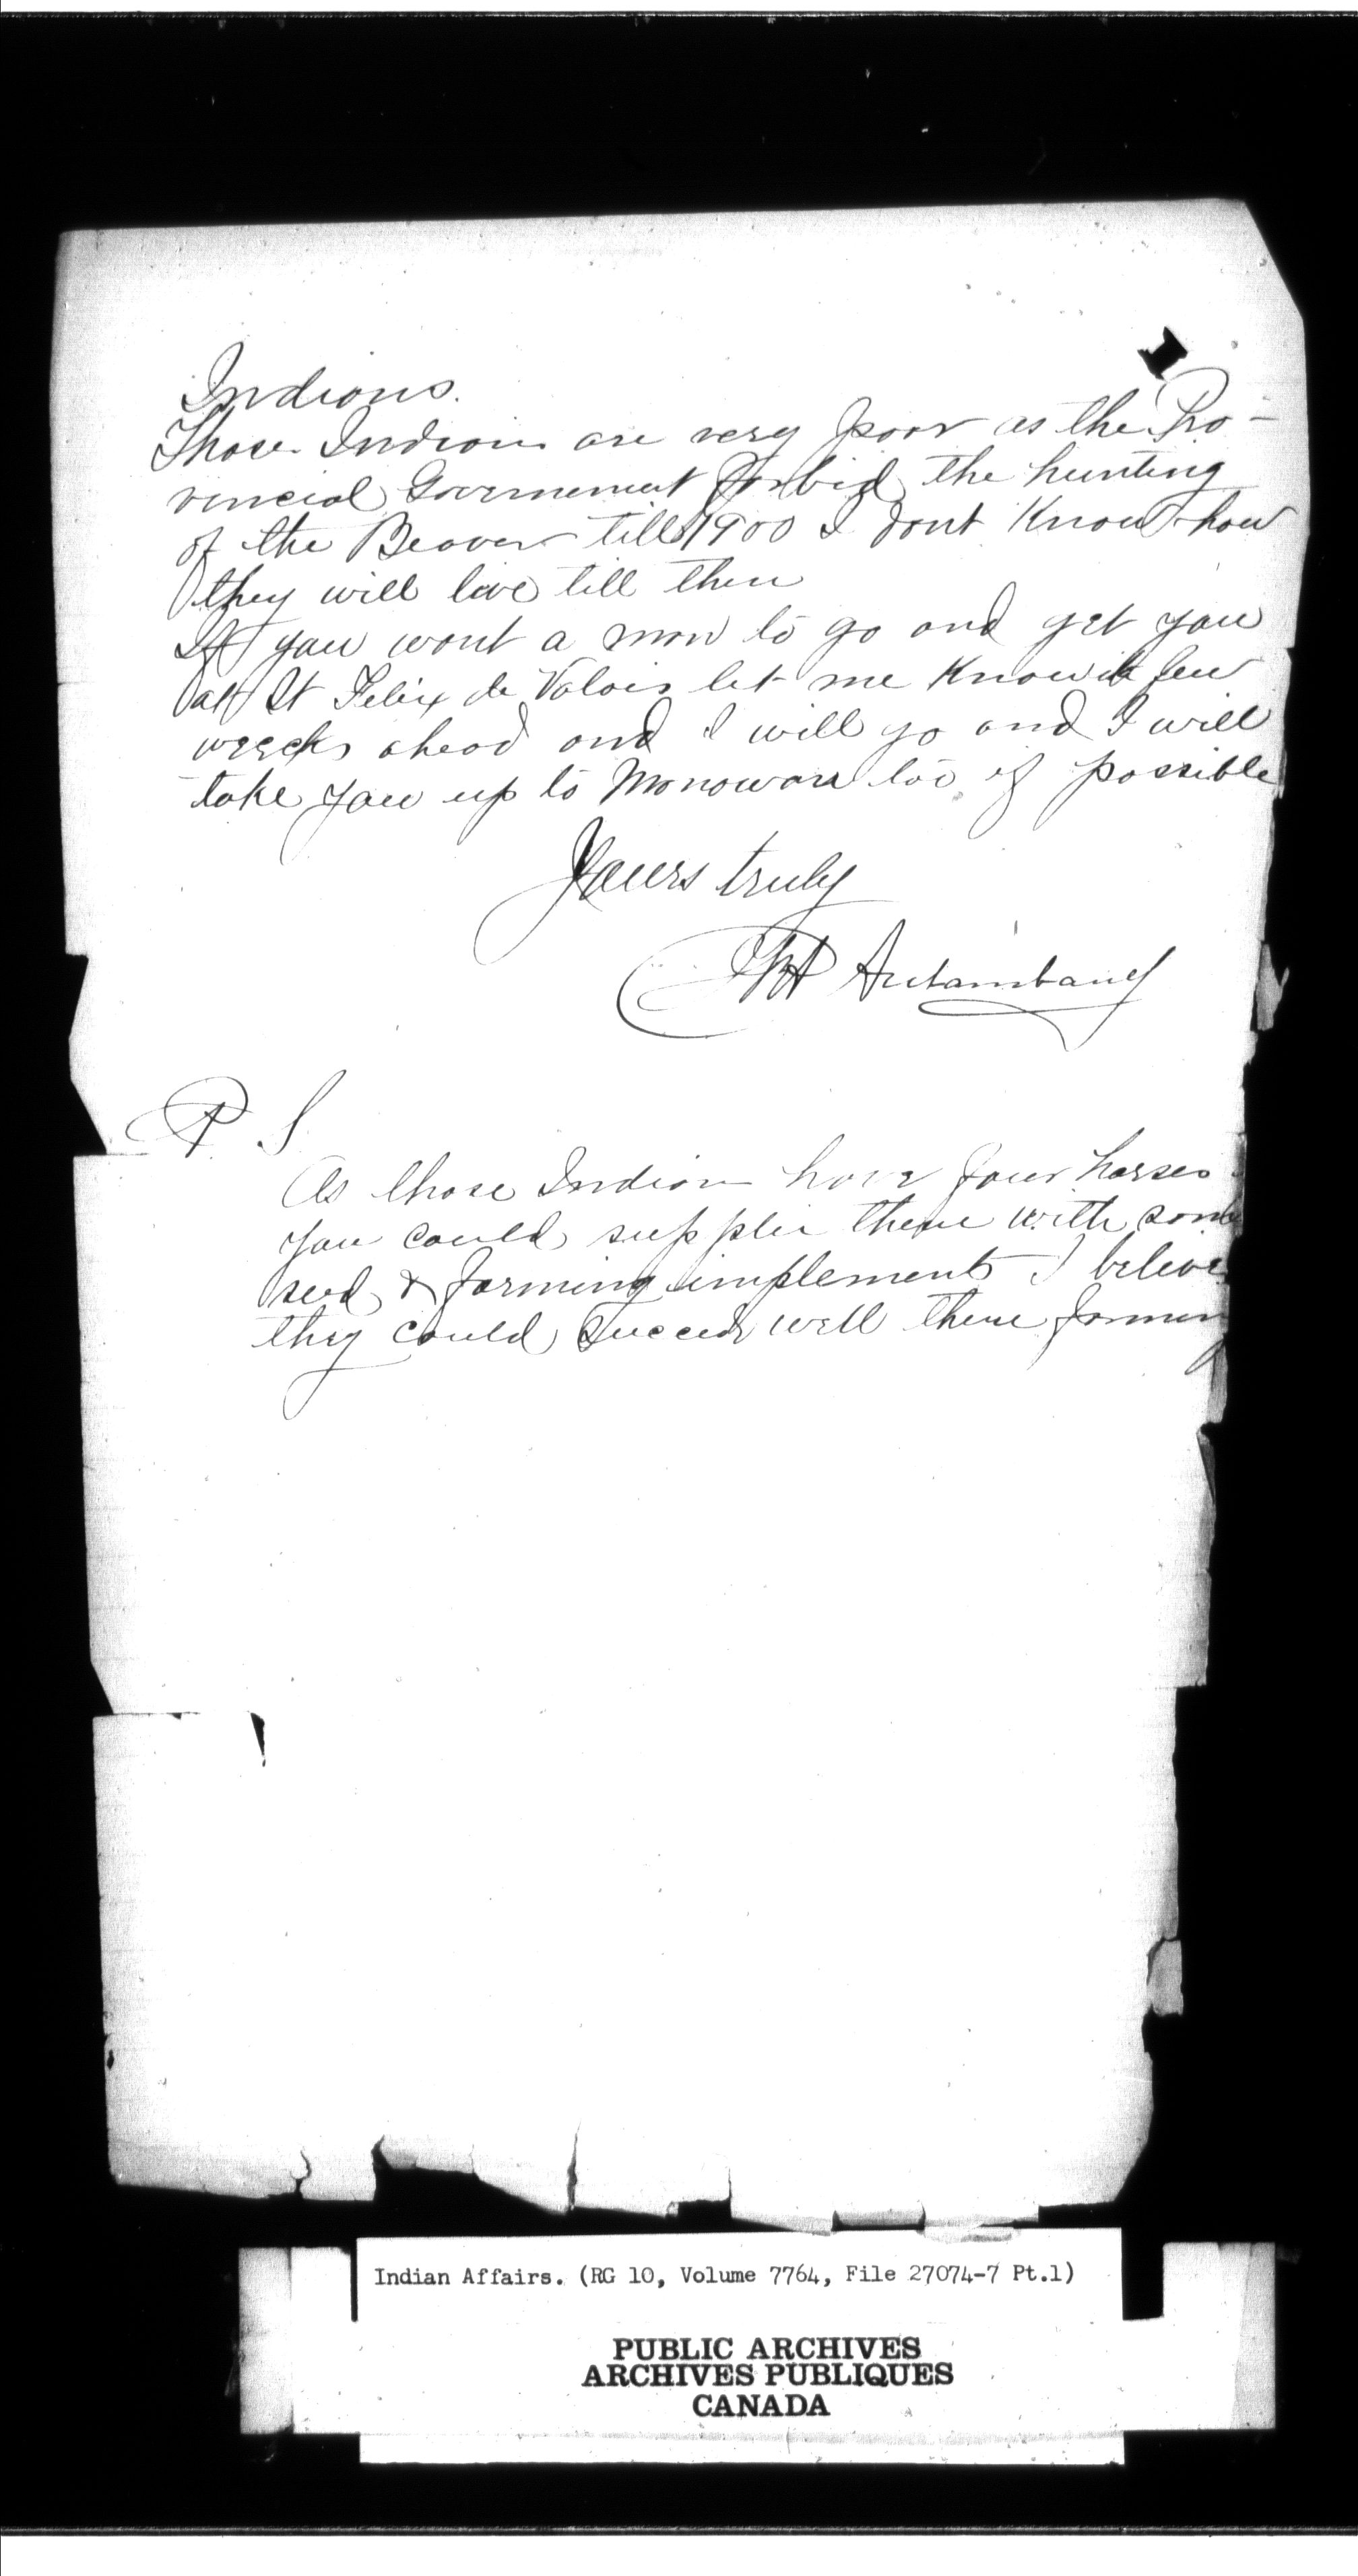 Indians.
Those Indian are very poor as the Pro-
vincial Governement forbid the hunting
of the Beaver till 1900 I dont Know how
they will live till then
If you want a man to go and get you
at St Felix de Valois let me Know it few
weecks ahead and I will go and I will
take you up to Manowan too if possible
Yours truly
P S
As those Indian have four horses
you could supplie them with some
seed & farming implements I belive
they could succeed well there farming
Indian Affairs. (RG 10, Volume 7764, File 27074-7 Pt.1)
PUBLIC ARCHIVES
ARCHIVES PUBLIQUES
CANADA